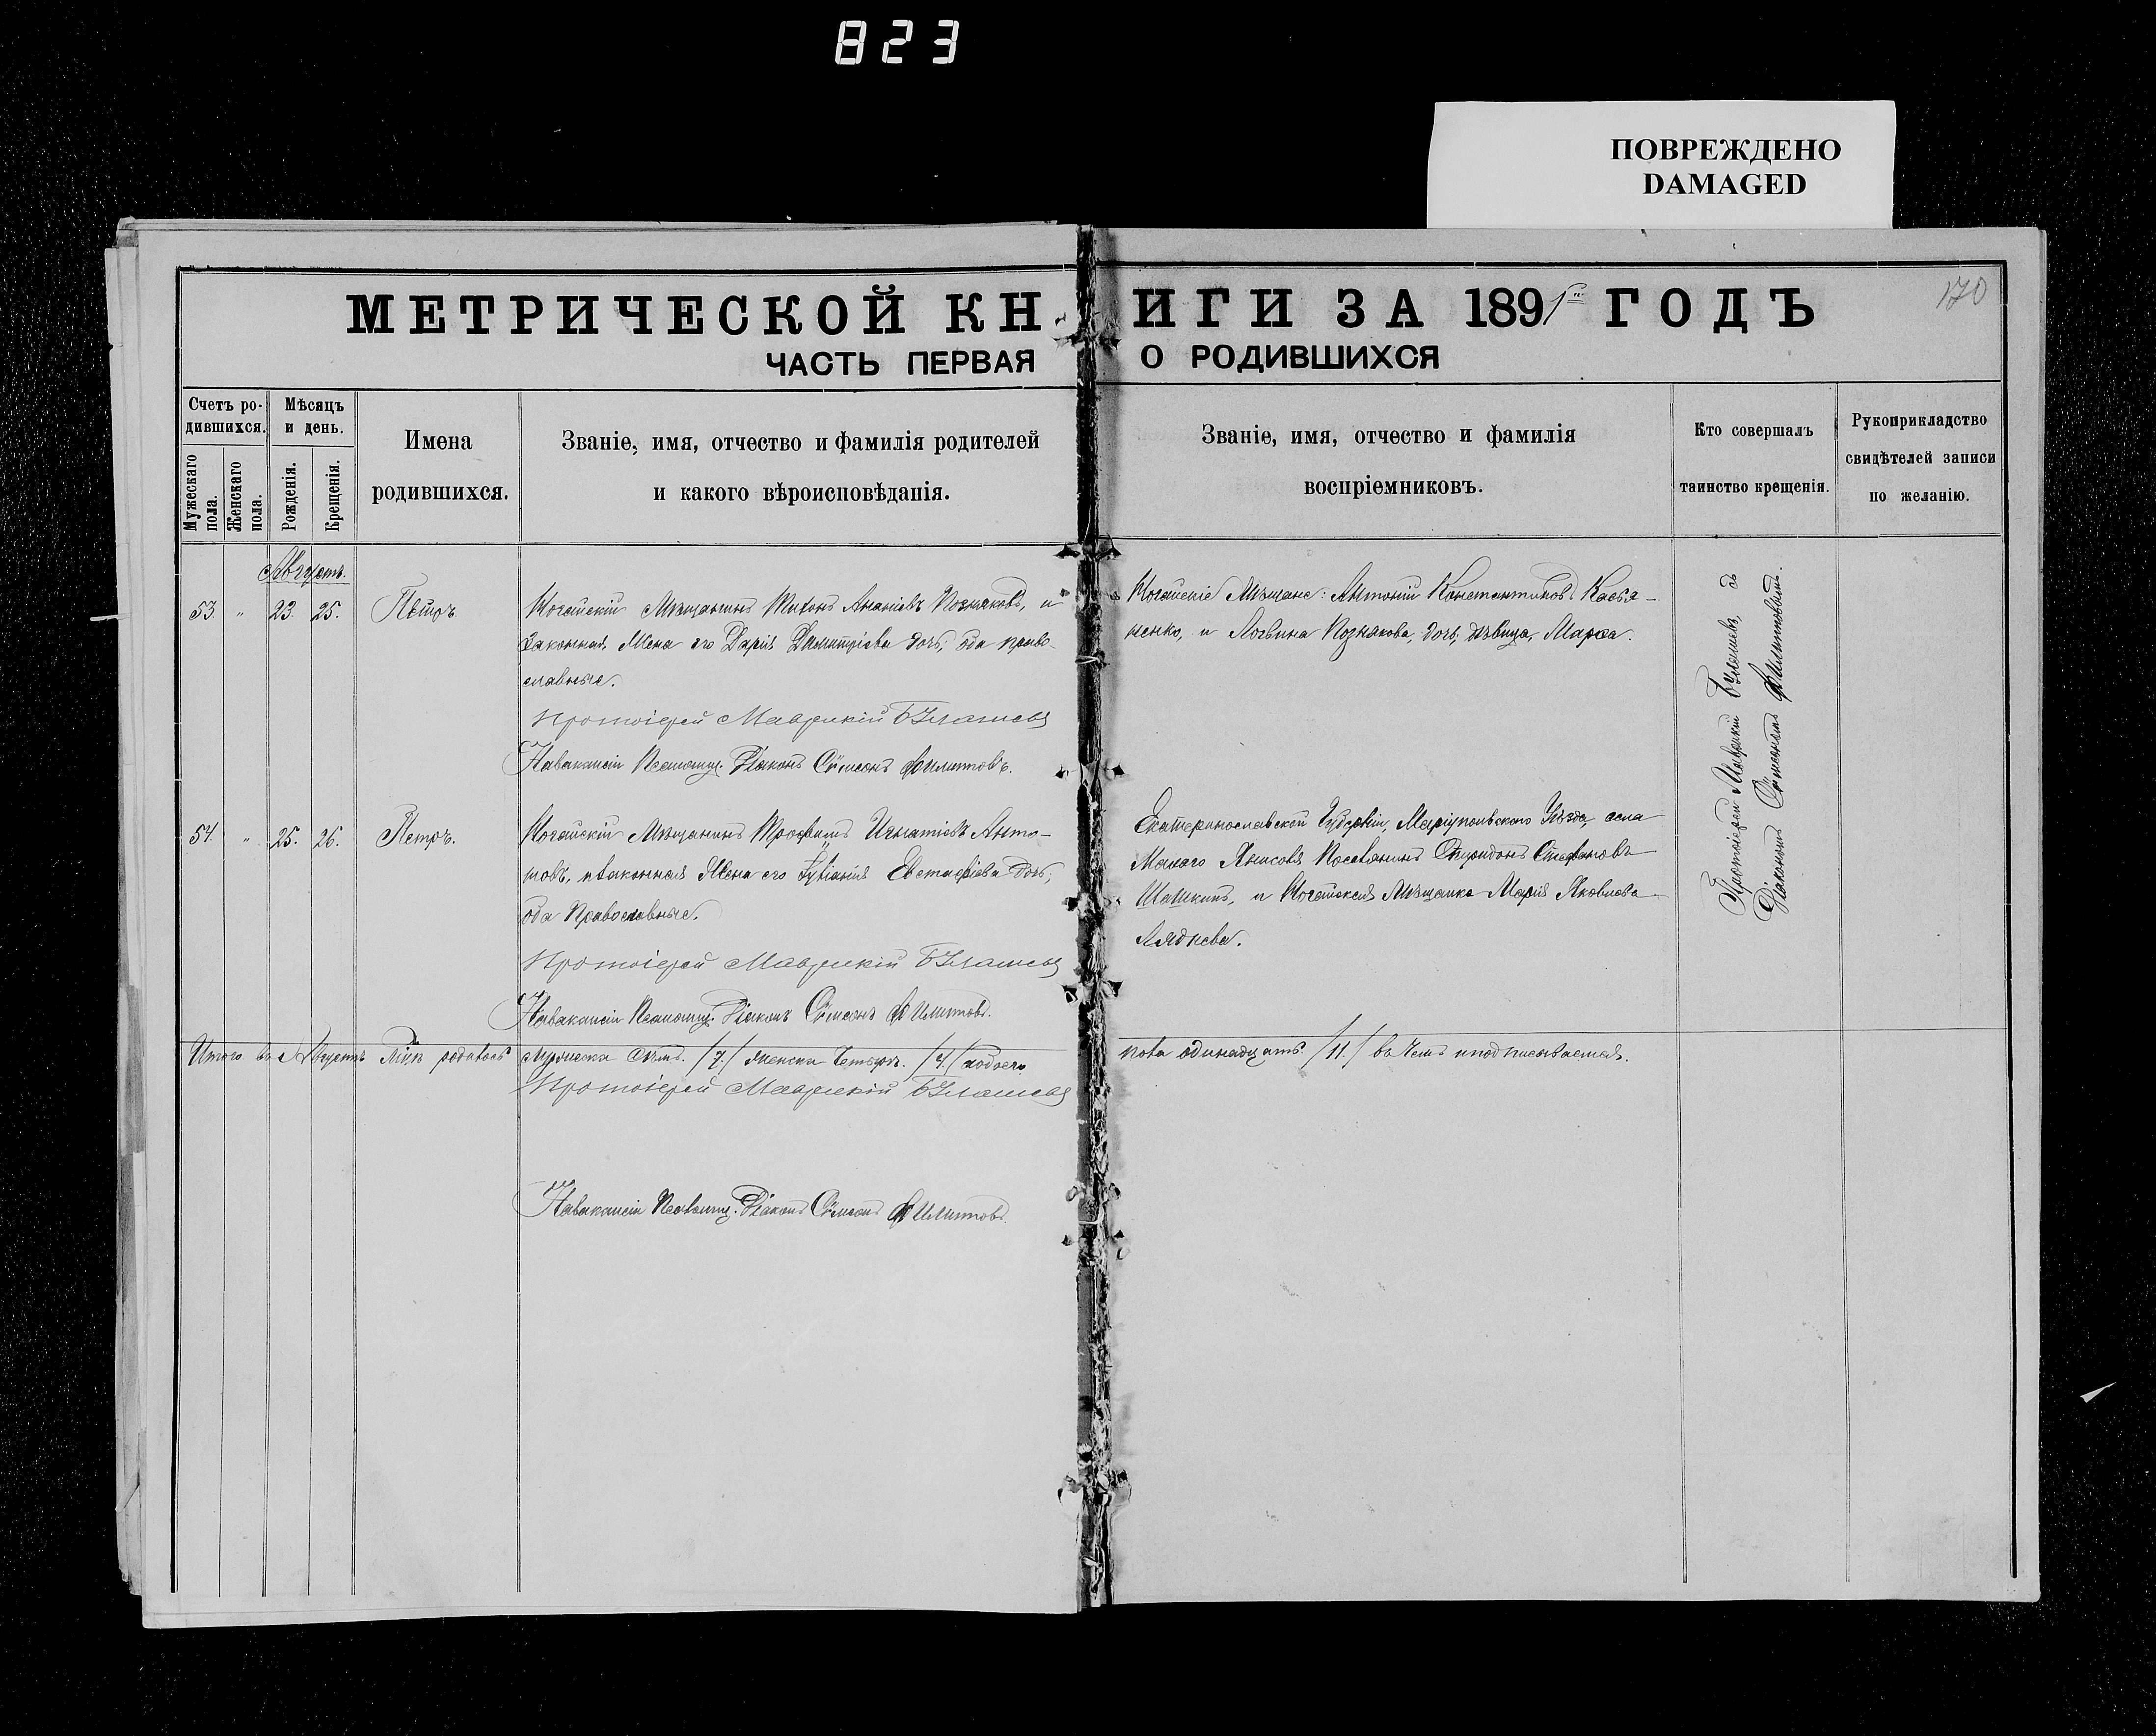 823
ПОВРЕЖДЕНО
DAMAGED
170
МЕТРИЧЕСКОЙ КНИГИ ЗА 1891й ГОДЪ
ЧАСТЬ ПЕРВАЯ О РОДИВШИХСЯ
Счетъ ро-
дившихся.
Мужескаго пола.
Женскаго пола.
Мѣсяцъ
и день.
Рожденія.
Крещенія.
Имена
родившихся.
Званіе, имя, отчество и фамилія родителей
и какого вѣроисповѣданія.
Званіе, имя, отчество и фамилія
воспріемниковъ.
Кто совершалъ
таинство крещенія.
Рукоприкладство
свидѣтелей записи
по желанію.
Августъ.
53. " 23. 25. Петръ
Ногайскій Мѣщанинъ Тихонъ Ананіевъ Позняковъ, и
Законная Жена его Дарія Димитріева дочь; оба право-
славные.
Протоіерей Маврикій
Навакансіи Псаломщ. Діаконъ Сѵмеонъ Филиповъ.
Ногайскіе Мѣщане: Антоній Константиновъ Касья-
ненко, и Логвина Познякова, дочь, дѣвица, Марѳа.
54. " 25. 26. Петръ.
Ногайскій Мѣщанинъ Трофимъ Игнатіевъ Анто-
новъ, и законная Жена его Евстафіева дочь;
оба Православные.
Протоіерей Маврикій
Навакансіи Псаломщ. Діаконъ Сѵмеонъ Филиповъ.
Екатеринославской Губерніи, Маріупольскаго Уѣзда, села
Малаго Янисоля Поселянинъ Спиридонъ Стефановъ
Шашкинъ, и Ногайская Мѣщанка Марія Яковлева
Аяднева.
Протоіерей Маврикій съ
Діакономъ Сѵмеономъ Филиповымъ.
Итого въ Августѣ м-цѣ родилось мужеска семь /7./ женска четыре. /4./ обоего
пола одинадцать /11./ въ чемъ и подписываемся.
Протоіерей Маврикій
Навакансіи Псаломщ. Діаконъ Сѵмеонъ Филиповъ.